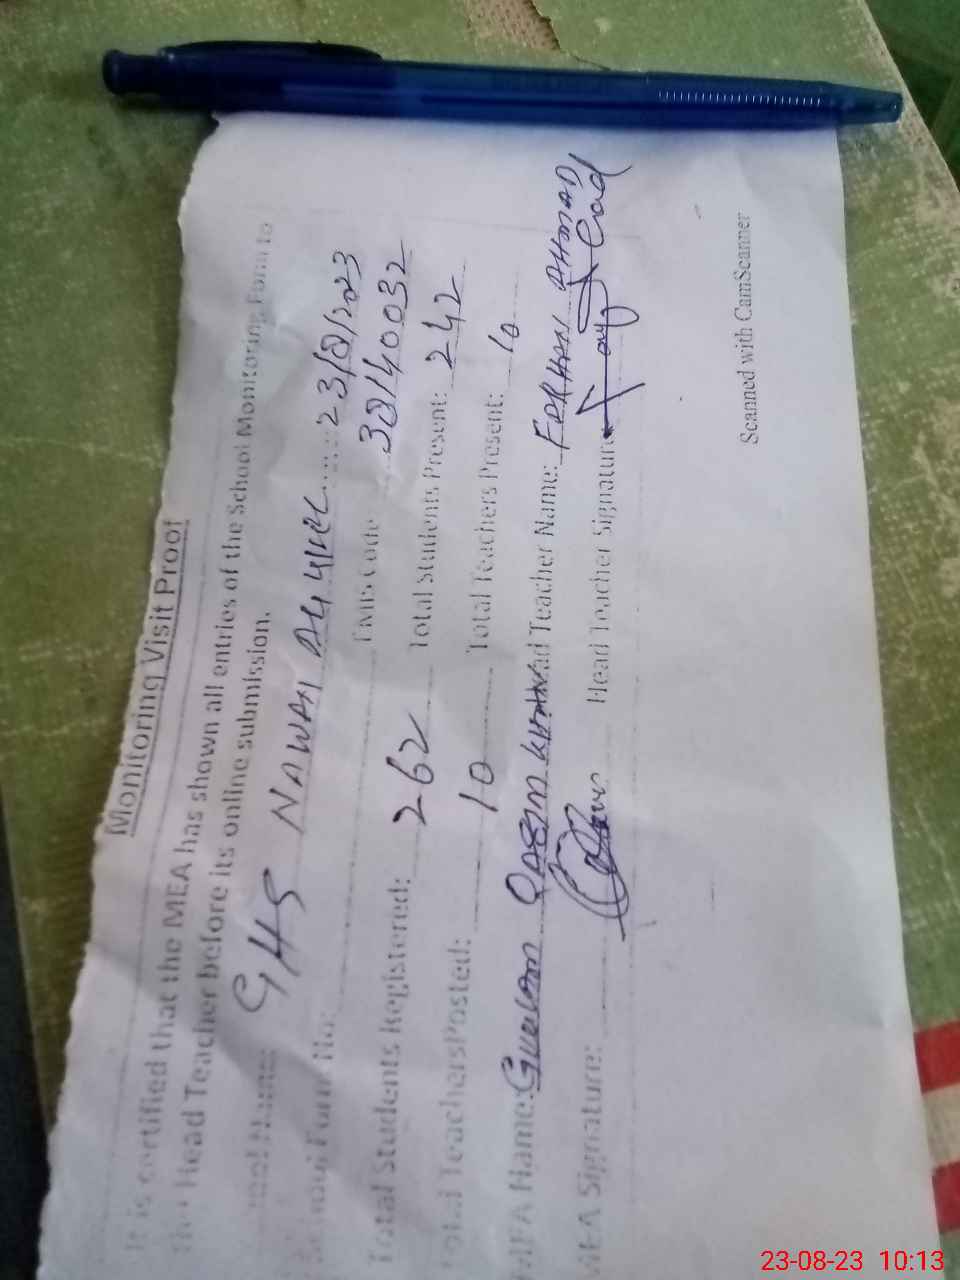 Monitoring Visit Proof
It is certified that the MEA has shown all entries of the School Monitoring Form to
the Head Teacher before its online submission.
School Name: GHS NAWAN 23/8/2023
EMIS Code 38140032
Total Students Registered: 262 Total Students Present: 242
Total TeachersPosted: 10 Total Teachers Present: 10
MEA Name: GHULAM QASIM KHAN Head Teacher Name: FARHAN AHMAD
MEA Signature: Head Teacher Signature
Scanned with CamScanner
23-08-23 10:13